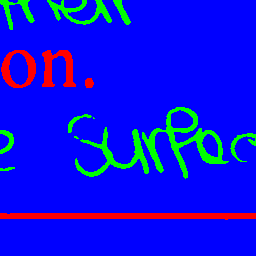 on.
e surfac